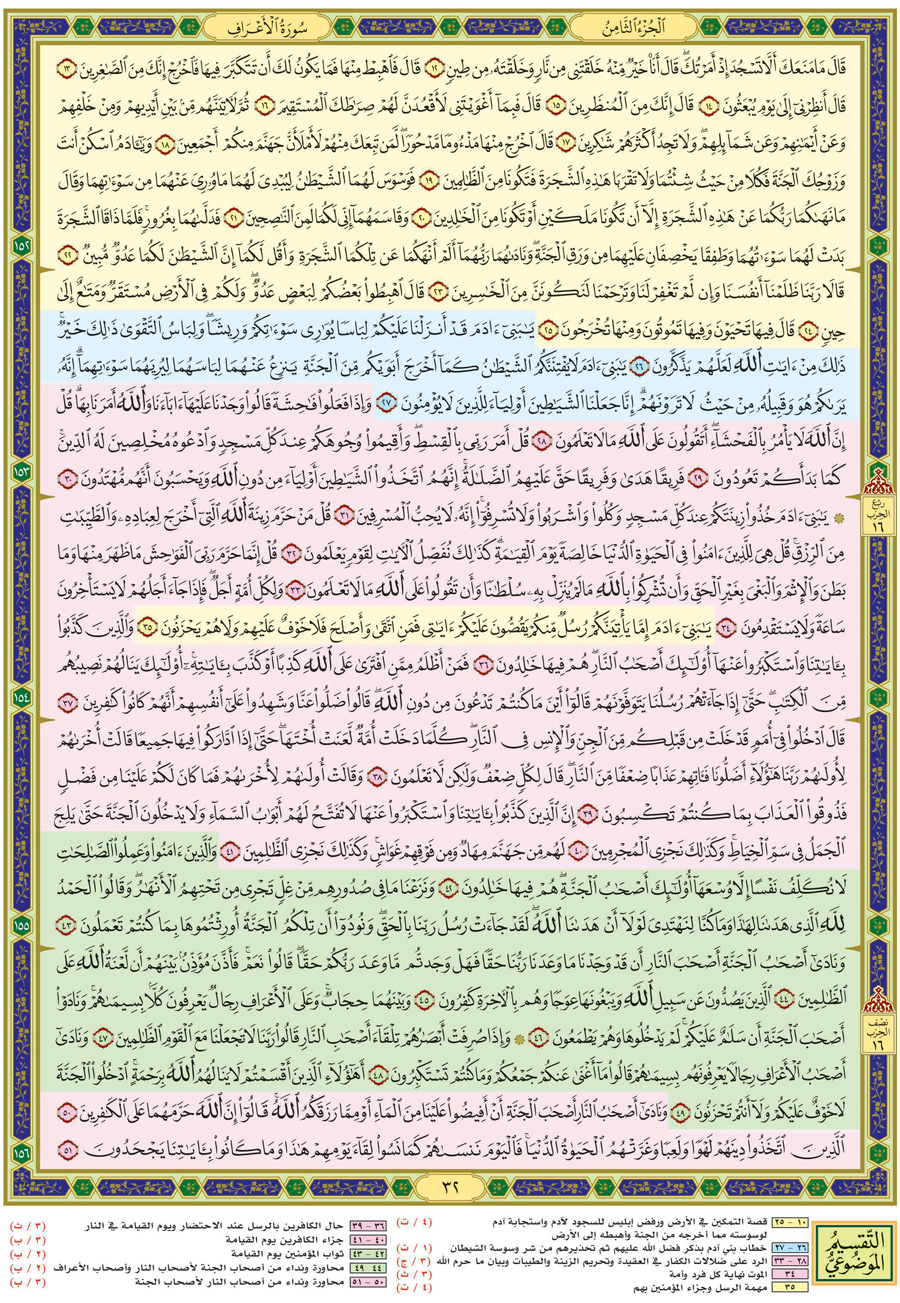 الجُزْءُ الثَّامِنُ
سُورَةُ الْأَعْرَافِ
قَالَ مَا مَنَعَكَ أَلَّا تَسْجُدَ إِذْ أَمَرْتُكَ ۖ قَالَ أَنَا۠ خَيْرٌ مِّنْهُ خَلَقْتَنِى مِن نَّارٍ وَخَلَقْتَهُۥ مِن طِينٍ ١٢ قَالَ فَٱهْبِطْ مِنْهَا فَمَا يَكُونُ لَكَ أَن تَتَكَبَّرَ فِيهَا فَٱخْرُجْ إِنَّكَ مِنَ ٱلصَّٰغِرِينَ ١٣
قَالَ أَنظِرْنِىٓ إِلَىٰ يَوْمِ يُبْعَثُونَ ١٤ قَالَ إِنَّكَ مِنَ ٱلْمُنظَرِينَ ١٥ قَالَ فَبِمَآ أَغْوَيْتَنِى لَأَقْعُدَنَّ لَهُمْ صِرَٰطَكَ ٱلْمُسْتَقِيمَ ١٦ ثُمَّ لَءَاتِيَنَّهُم مِّنۢ بَيْنِ أَيْدِيهِمْ وَمِنْ خَلْفِهِمْ
وَعَنْ أَيْمَٰنِهِمْ وَعَن شَمَآئِلِهِمْ ۖ وَلَا تَجِدُ أَكْثَرَهُمْ شَٰكِرِينَ ١٧ قَالَ ٱخْرُجْ مِنْهَا مَذْءُومًا مَّدْحُورًا ۖ لَّمَن تَبِعَكَ مِنْهُمْ لَأَمْلَأَنَّ جَهَنَّمَ مِنكُمْ أَجْمَعِينَ ١٨ وَيَٰٓـَٔادَمُ ٱسْكُنْ أَنتَ
وَزَوْجُكَ ٱلْجَنَّةَ فَكُلَا مِنْ حَيْثُ شِئْتُمَا وَلَا تَقْرَبَا هَٰذِهِ ٱلشَّجَرَةَ فَتَكُونَا مِنَ ٱلظَّٰلِمِينَ ١٩ فَوَسْوَسَ لَهُمَا ٱلشَّيْطَٰنُ لِيُبْدِىَ لَهُمَا مَا وُۥرِىَ عَنْهُمَا مِن سَوْءَٰتِهِمَا وَقَالَ
مَا نَهَىٰكُمَا رَبُّكُمَا عَنْ هَٰذِهِ ٱلشَّجَرَةِ إِلَّآ أَن تَكُونَا مَلَكَيْنِ أَوْ تَكُونَا مِنَ ٱلْخَٰلِدِينَ ٢٠ وَقَاسَمَهُمَآ إِنِّى لَكُمَا لَمِنَ ٱلنَّٰصِحِينَ ٢١ فَدَلَّىٰهُمَا بِغُرُورٍ ۚ فَلَمَّا ذَاقَا ٱلشَّجَرَةَ
بَدَتْ لَهُمَا سَوْءَٰتُهُمَا وَطَفِقَا يَخْصِفَانِ عَلَيْهِمَا مِن وَرَقِ ٱلْجَنَّةِ ۖ وَنَادَىٰهُمَا رَبُّهُمَآ أَلَمْ أَنْهَكُمَا عَن تِلْكُمَا ٱلشَّجَرَةِ وَأَقُل لَّكُمَآ إِنَّ ٱلشَّيْطَٰنَ لَكُمَا عَدُوٌّ مُّبِينٌ ٢٢
قَالَا رَبَّنَا ظَلَمْنَآ أَنفُسَنَا وَإِن لَّمْ تَغْفِرْ لَنَا وَتَرْحَمْنَا لَنَكُونَنَّ مِنَ ٱلْخَٰسِرِينَ ٢٣ قَالَ ٱهْبِطُوا۟ بَعْضُكُمْ لِبَعْضٍ عَدُوٌّ ۖ وَلَكُمْ فِى ٱلْأَرْضِ مُسْتَقَرٌّ وَمَتَٰعٌ إِلَىٰ
حِينٍ ٢٤ قَالَ فِيهَا تَحْيَوْنَ وَفِيهَا تَمُوتُونَ وَمِنْهَا تُخْرَجُونَ ٢٥ يَٰبَنِىٓ ءَادَمَ قَدْ أَنزَلْنَا عَلَيْكُمْ لِبَاسًا يُوَٰرِى سَوْءَٰتِكُمْ وَرِيشًا ۖ وَلِبَاسُ ٱلتَّقْوَىٰ ذَٰلِكَ خَيْرٌ ۚ
ذَٰلِكَ مِنْ ءَايَٰتِ ٱللَّهِ لَعَلَّهُمْ يَذَّكَّرُونَ ٢٦ يَٰبَنِىٓ ءَادَمَ لَا يَفْتِنَنَّكُمُ ٱلشَّيْطَٰنُ كَمَآ أَخْرَجَ أَبَوَيْكُم مِّنَ ٱلْجَنَّةِ يَنزِعُ عَنْهُمَا لِبَاسَهُمَا لِيُرِيَهُمَا سَوْءَٰتِهِمَآ ۗ إِنَّهُۥ
يَرَىٰكُمْ هُوَ وَقَبِيلُهُۥ مِنْ حَيْثُ لَا تَرَوْنَهُمْ ۗ إِنَّا جَعَلْنَا ٱلشَّيَٰطِينَ أَوْلِيَآءَ لِلَّذِينَ لَا يُؤْمِنُونَ ٢٧ وَإِذَا فَعَلُوا۟ فَٰحِشَةً قَالُوا۟ وَجَدْنَا عَلَيْهَآ ءَابَآءَنَا وَٱللَّهُ أَمَرَنَا بِهَا ۗ قُلْ
إِنَّ ٱللَّهَ لَا يَأْمُرُ بِٱلْفَحْشَآءِ ۖ أَتَقُولُونَ عَلَى ٱللَّهِ مَا لَا تَعْلَمُونَ ٢٨ قُلْ أَمَرَ رَبِّى بِٱلْقِسْطِ ۖ وَأَقِيمُوا۟ وُجُوهَكُمْ عِندَ كُلِّ مَسْجِدٍ وَٱدْعُوهُ مُخْلِصِينَ لَهُ ٱلدِّينَ ۚ
كَمَا بَدَأَكُمْ تَعُودُونَ ٢٩ فَرِيقًا هَدَىٰ وَفَرِيقًا حَقَّ عَلَيْهِمُ ٱلضَّلَٰلَةُ ۗ إِنَّهُمُ ٱتَّخَذُوا۟ ٱلشَّيَٰطِينَ أَوْلِيَآءَ مِن دُونِ ٱللَّهِ وَيَحْسَبُونَ أَنَّهُم مُّهْتَدُونَ ٣٠
۞ يَٰبَنِىٓ ءَادَمَ خُذُوا۟ زِينَتَكُمْ عِندَ كُلِّ مَسْجِدٍ وَكُلُوا۟ وَٱشْرَبُوا۟ وَلَا تُسْرِفُوٓا۟ ۚ إِنَّهُۥ لَا يُحِبُّ ٱلْمُسْرِفِينَ ٣١ قُلْ مَنْ حَرَّمَ زِينَةَ ٱللَّهِ ٱلَّتِىٓ أَخْرَجَ لِعِبَادِهِۦ وَٱلطَّيِّبَٰتِ
مِنَ ٱلرِّزْقِ ۚ قُلْ هِىَ لِلَّذِينَ ءَامَنُوا۟ فِى ٱلْحَيَوٰةِ ٱلدُّنْيَا خَالِصَةً يَوْمَ ٱلْقِيَٰمَةِ ۗ كَذَٰلِكَ نُفَصِّلُ ٱلْـَٔايَٰتِ لِقَوْمٍ يَعْلَمُونَ ٣٢ قُلْ إِنَّمَا حَرَّمَ رَبِّىَ ٱلْفَوَٰحِشَ مَا ظَهَرَ مِنْهَا وَمَا
بَطَنَ وَٱلْإِثْمَ وَٱلْبَغْىَ بِغَيْرِ ٱلْحَقِّ وَأَن تُشْرِكُوا۟ بِٱللَّهِ مَا لَمْ يُنَزِّلْ بِهِۦ سُلْطَٰنًا وَأَن تَقُولُوا۟ عَلَى ٱللَّهِ مَا لَا تَعْلَمُونَ ٣٣ وَلِكُلِّ أُمَّةٍ أَجَلٌ ۖ فَإِذَا جَآءَ أَجَلُهُمْ لَا يَسْتَأْخِرُونَ
سَاعَةً وَلَا يَسْتَقْدِمُونَ ٣٤ يَٰبَنِىٓ ءَادَمَ إِمَّا يَأْتِيَنَّكُمْ رُسُلٌ مِّنكُمْ يَقُصُّونَ عَلَيْكُمْ ءَايَٰتِى فَمَنِ ٱتَّقَىٰ وَأَصْلَحَ فَلَا خَوْفٌ عَلَيْهِمْ وَلَا هُمْ يَحْزَنُونَ ٣٥ وَٱلَّذِينَ كَذَّبُوا۟
بِـَٔايَٰتِنَا وَٱسْتَكْبَرُوا۟ عَنْهَآ أُو۟لَٰٓئِكَ أَصْحَٰبُ ٱلنَّارِ ۖ هُمْ فِيهَا خَٰلِدُونَ ٣٦ فَمَنْ أَظْلَمُ مِمَّنِ ٱفْتَرَىٰ عَلَى ٱللَّهِ كَذِبًا أَوْ كَذَّبَ بِـَٔايَٰتِهِۦٓ ۚ أُو۟لَٰٓئِكَ يَنَالُهُمْ نَصِيبُهُم
مِّنَ ٱلْكِتَٰبِ ۖ حَتَّىٰٓ إِذَا جَآءَتْهُمْ رُسُلُنَا يَتَوَفَّوْنَهُمْ قَالُوٓا۟ أَيْنَ مَا كُنتُمْ تَدْعُونَ مِن دُونِ ٱللَّهِ ۖ قَالُوا۟ ضَلُّوا۟ عَنَّا وَشَهِدُوا۟ عَلَىٰٓ أَنفُسِهِمْ أَنَّهُمْ كَانُوا۟ كَٰفِرِينَ ٣٧
قَالَ ٱدْخُلُوا۟ فِىٓ أُمَمٍ قَدْ خَلَتْ مِن قَبْلِكُم مِّنَ ٱلْجِنِّ وَٱلْإِنسِ فِى ٱلنَّارِ ۖ كُلَّمَا دَخَلَتْ أُمَّةٌ لَّعَنَتْ أُخْتَهَا ۖ حَتَّىٰٓ إِذَا ٱدَّارَكُوا۟ فِيهَا جَمِيعًا قَالَتْ أُخْرَىٰهُمْ
لِأُولَىٰهُمْ رَبَّنَا هَٰٓؤُلَآءِ أَضَلُّونَا فَـَٔاتِهِمْ عَذَابًا ضِعْفًا مِّنَ ٱلنَّارِ ۖ قَالَ لِكُلٍّ ضِعْفٌ وَلَٰكِن لَّا تَعْلَمُونَ ٣٨ وَقَالَتْ أُولَىٰهُمْ لِأُخْرَىٰهُمْ فَمَا كَانَ لَكُمْ عَلَيْنَا مِن فَضْلٍ
فَذُوقُوا۟ ٱلْعَذَابَ بِمَا كُنتُمْ تَكْسِبُونَ ٣٩ إِنَّ ٱلَّذِينَ كَذَّبُوا۟ بِـَٔايَٰتِنَا وَٱسْتَكْبَرُوا۟ عَنْهَا لَا تُفَتَّحُ لَهُمْ أَبْوَٰبُ ٱلسَّمَآءِ وَلَا يَدْخُلُونَ ٱلْجَنَّةَ حَتَّىٰ يَلِجَ
ٱلْجَمَلُ فِى سَمِّ ٱلْخِيَاطِ ۚ وَكَذَٰلِكَ نَجْزِى ٱلْمُجْرِمِينَ ٤٠ لَهُم مِّن جَهَنَّمَ مِهَادٌ وَمِن فَوْقِهِمْ غَوَاشٍ ۚ وَكَذَٰلِكَ نَجْزِى ٱلظَّٰلِمِينَ ٤١ وَٱلَّذِينَ ءَامَنُوا۟ وَعَمِلُوا۟ ٱلصَّٰلِحَٰتِ
لَا نُكَلِّفُ نَفْسًا إِلَّا وُسْعَهَآ أُو۟لَٰٓئِكَ أَصْحَٰبُ ٱلْجَنَّةِ ۖ هُمْ فِيهَا خَٰلِدُونَ ٤٢ وَنَزَعْنَا مَا فِى صُدُورِهِم مِّنْ غِلٍّ تَجْرِى مِن تَحْتِهِمُ ٱلْأَنْهَٰرُ ۖ وَقَالُوا۟ ٱلْحَمْدُ
لِلَّهِ ٱلَّذِى هَدَىٰنَا لِهَٰذَا وَمَا كُنَّا لِنَهْتَدِىَ لَوْلَآ أَنْ هَدَىٰنَا ٱللَّهُ ۖ لَقَدْ جَآءَتْ رُسُلُ رَبِّنَا بِٱلْحَقِّ ۖ وَنُودُوٓا۟ أَن تِلْكُمُ ٱلْجَنَّةُ أُورِثْتُمُوهَا بِمَا كُنتُمْ تَعْمَلُونَ ٤٣
وَنَادَىٰٓ أَصْحَٰبُ ٱلْجَنَّةِ أَصْحَٰبَ ٱلنَّارِ أَن قَدْ وَجَدْنَا مَا وَعَدَنَا رَبُّنَا حَقًّا فَهَلْ وَجَدتُّم مَّا وَعَدَ رَبُّكُمْ حَقًّا ۖ قَالُوا۟ نَعَمْ ۚ فَأَذَّنَ مُؤَذِّنٌۢ بَيْنَهُمْ أَن لَّعْنَةُ ٱللَّهِ عَلَى
ٱلظَّٰلِمِينَ ٤٤ ٱلَّذِينَ يَصُدُّونَ عَن سَبِيلِ ٱللَّهِ وَيَبْغُونَهَا عِوَجًا وَهُم بِٱلْـَٔاخِرَةِ كَٰفِرُونَ ٤٥ وَبَيْنَهُمَا حِجَابٌ ۚ وَعَلَى ٱلْأَعْرَافِ رِجَالٌ يَعْرِفُونَ كُلًّۢا بِسِيمَىٰهُمْ ۚ وَنَادَوْا۟
أَصْحَٰبَ ٱلْجَنَّةِ أَن سَلَٰمٌ عَلَيْكُمْ ۚ لَمْ يَدْخُلُوهَا وَهُمْ يَطْمَعُونَ ٤٦ ۞ وَإِذَا صُرِفَتْ أَبْصَٰرُهُمْ تِلْقَآءَ أَصْحَٰبِ ٱلنَّارِ قَالُوا۟ رَبَّنَا لَا تَجْعَلْنَا مَعَ ٱلْقَوْمِ ٱلظَّٰلِمِينَ ٤٧ وَنَادَىٰٓ
أَصْحَٰبُ ٱلْأَعْرَافِ رِجَالًا يَعْرِفُونَهُم بِسِيمَىٰهُمْ قَالُوا۟ مَآ أَغْنَىٰ عَنكُمْ جَمْعُكُمْ وَمَا كُنتُمْ تَسْتَكْبِرُونَ ٤٨ أَهَٰٓؤُلَآءِ ٱلَّذِينَ أَقْسَمْتُمْ لَا يَنَالُهُمُ ٱللَّهُ بِرَحْمَةٍ ۚ ٱدْخُلُوا۟ ٱلْجَنَّةَ
لَا خَوْفٌ عَلَيْكُمْ وَلَآ أَنتُمْ تَحْزَنُونَ ٤٩ وَنَادَىٰٓ أَصْحَٰبُ ٱلنَّارِ أَصْحَٰبَ ٱلْجَنَّةِ أَنْ أَفِيضُوا۟ عَلَيْنَا مِنَ ٱلْمَآءِ أَوْ مِمَّا رَزَقَكُمُ ٱللَّهُ ۚ قَالُوٓا۟ إِنَّ ٱللَّهَ حَرَّمَهُمَا عَلَى ٱلْكَٰفِرِينَ ٥٠
ٱلَّذِينَ ٱتَّخَذُوا۟ دِينَهُمْ لَهْوًا وَلَعِبًا وَغَرَّتْهُمُ ٱلْحَيَوٰةُ ٱلدُّنْيَا ۚ فَٱلْيَوْمَ نَنسَىٰهُمْ كَمَا نَسُوا۟ لِقَآءَ يَوْمِهِمْ هَٰذَا وَمَا كَانُوا۟ بِـَٔايَٰتِنَا يَجْحَدُونَ ٥١
رُبع
الحِزب
١٦
نِصْف
الحِزب
١٦
١٥٢
١٥٣
١٥٤
١٥٥
١٥٦
٣٢
التَّقسِيمُ
المَوضُوعِيُّ
١٠ – ٢٥ قصة التمكين في الأرض ورفض إبليس للسجود لآدم واستجابة آدم (٤ / ت)
لوسوسته مما أخرجه من الجنة وأهبطه إلى الأرض
٢٦ – ٢٧ خطاب بني آدم بذكر فضل الله عليهم ثم تحذيرهم من شر وسوسة الشيطان (١ / ت)
٢٨ – ٣٣ الرد على ضلالات الكفار في العقيدة وتحريم الزينة والطيبات وبيان ما حرم الله (٣ / ج)
٣٤ الموت نهاية كل فرد وأمة (٣ / ث)
٣٥ مهمة الرسل وجزاء المؤمنين بهم (٤ / ت)
٣٦ – ٣٩ حال الكافرين بالرسل عند الاحتضار ويوم القيامة في النار (٣ / ث)
٤٠ – ٤١ جزاء الكافرين يوم القيامة (٣ / ب)
٤٢ – ٤٣ ثواب المؤمنين يوم القيامة (٢ / ب)
٤٤ ٤٩ محاورة ونداء من أصحاب الجنة لأصحاب النار وأصحاب الأعراف (٢ / ب)
٥٠ – ٥١ محاورة ونداء من أصحاب النار لأصحاب الجنة (٣ / ب)